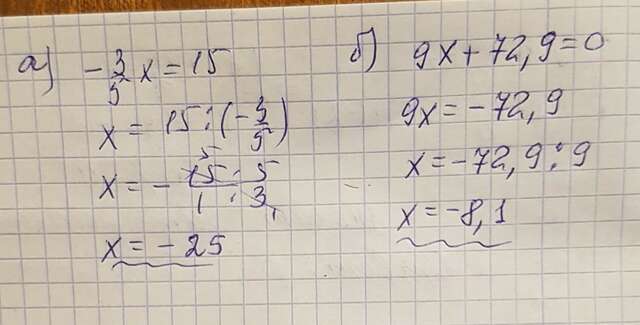 а) -3/5 x = 15
x = 15 : (-3/5)
x = - 15 · 5 / 1 · 3
x = -25
б) 9x + 72,9 = 0
9x = -72,9
x = -72,9 : 9
x = -8,1